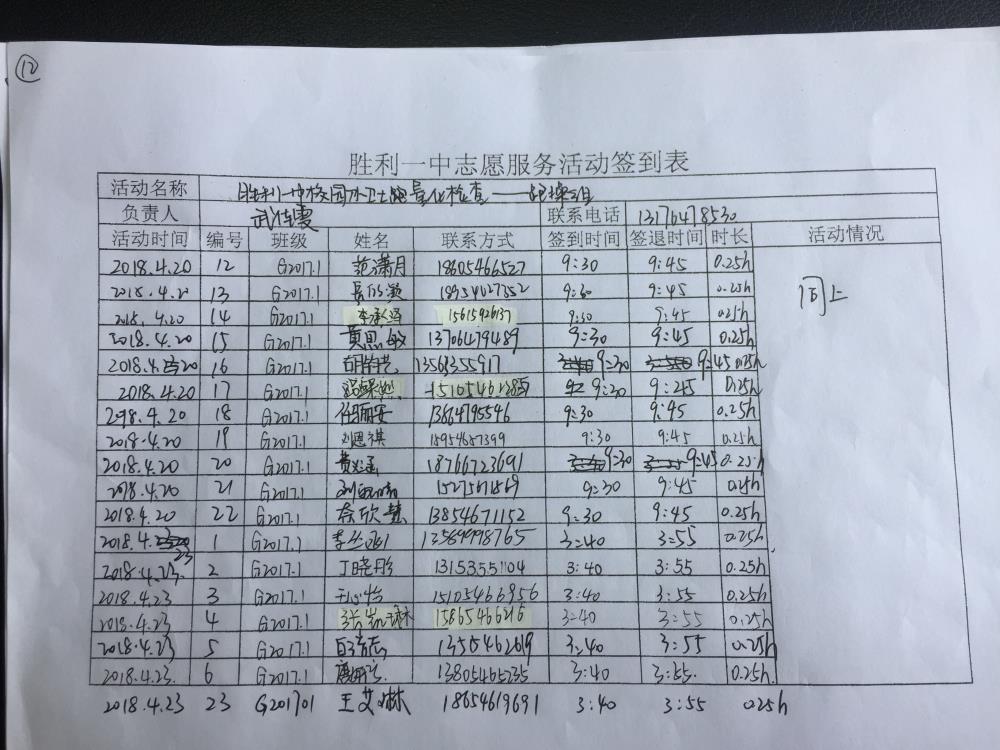 12
胜利一中志愿服务活动签到表
活动名称 胜利一中校园 卫生 量化检查——
负责人 武佳雯 联系电话 13176478530
活动时间 编号 班级 姓名 联系方式 签到时间 签退时间 时长 活动情况
2018.4.20 12 G2017.1 范潇月 18605466527 9:30 9:45 0.25h 同上
2018.4.20 13 G2017.1 18954627352 9:30 9:45 0.25h
2018.4.20 14 G2017.1 15615926137 9:30 9:45 0.25h
2018.4.20 15 G2017.1 黄思敏 13706479489 9:30 9:45 0.25h
2018.4.20 16 G2017.1 13563355917 9:30 9:45 0.25h
2018.4.20 17 G2017.1 9:30 9:45 0.25h
2018.4.20 18 G2017.1 任丽安 13664795546 9:30 9:45 0.25h
2018.4.20 19 G2017.1 刘恩祺 15954657399 9:30 9:45 0.25h
2018.4.20 20 G2017.1 18766723691 9:30 9:45 0.25h
2018.4.20 21 G2017.1 9:30 9:45 0.25h
2018.4.20 22 G2017.1 13854671152 9:30 9:45 0.25h
2018.4.23 1 G2017.1 13589998765 3:40 3:55 0.25h
2018.4.23 2 G2017.1 丁晓彤 13153551104 3:40 3:55 0.25h
2018.4.23 3 G2017.1 于心怡 15105466956 3:40 3:55 0.25h
2018.4.23 4 G2017.1 15865466216 3:40 3:55 0.25h
2018.4.23 5 G2017.1 3:40 3:55 0.25h
2018.4.23. 6 G2017.1 13805465235 3:40 3:55. 0.25h
2018.4.23 23 G201701 王艾琳 18654619691 3:40 3:55 0.25h